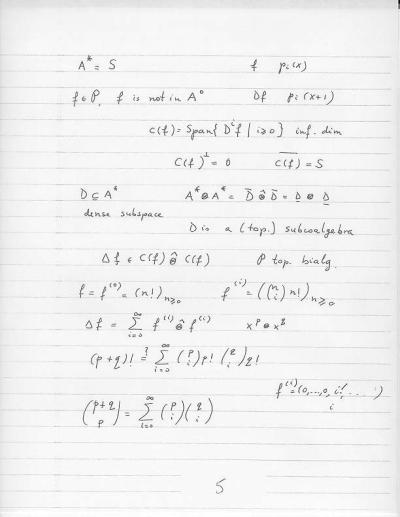 A* = S f p_i(x)
f ∈ P, f is not in A° Df p_i(x+1)
C(f) = Span{ D^i f | i ≥ 0 } inf. dim
C(f)^⊥ = 0 \overline{C(f)} = S
D ⊆ A* A* ⊗̂ A* = D̄ ⊗̂ D̄ = D ⊗ D
dense subspace
D is a (top.) subcoalgebra
Δf ∈ C(f) ⊗̂ C(f) P top. bialg.
f = f^(0) = (n!)_{n≥0} f^(i) = (\binom{n}{i} n!)_{n≥0}
Δf = \sum_{i=0}^{∞} f^(i) ⊗̂ f^(i) x^p ⊗ x^q
(p+q)! \stackrel{?}{=} \sum_{i=0}^{∞} \binom{p}{i} p! \binom{q}{i} q!
f^(i) = (0,...,0, i!, ......)
i
\binom{p+q}{p} = \sum_{i=0}^{∞} \binom{p}{i} \binom{q}{i}
5